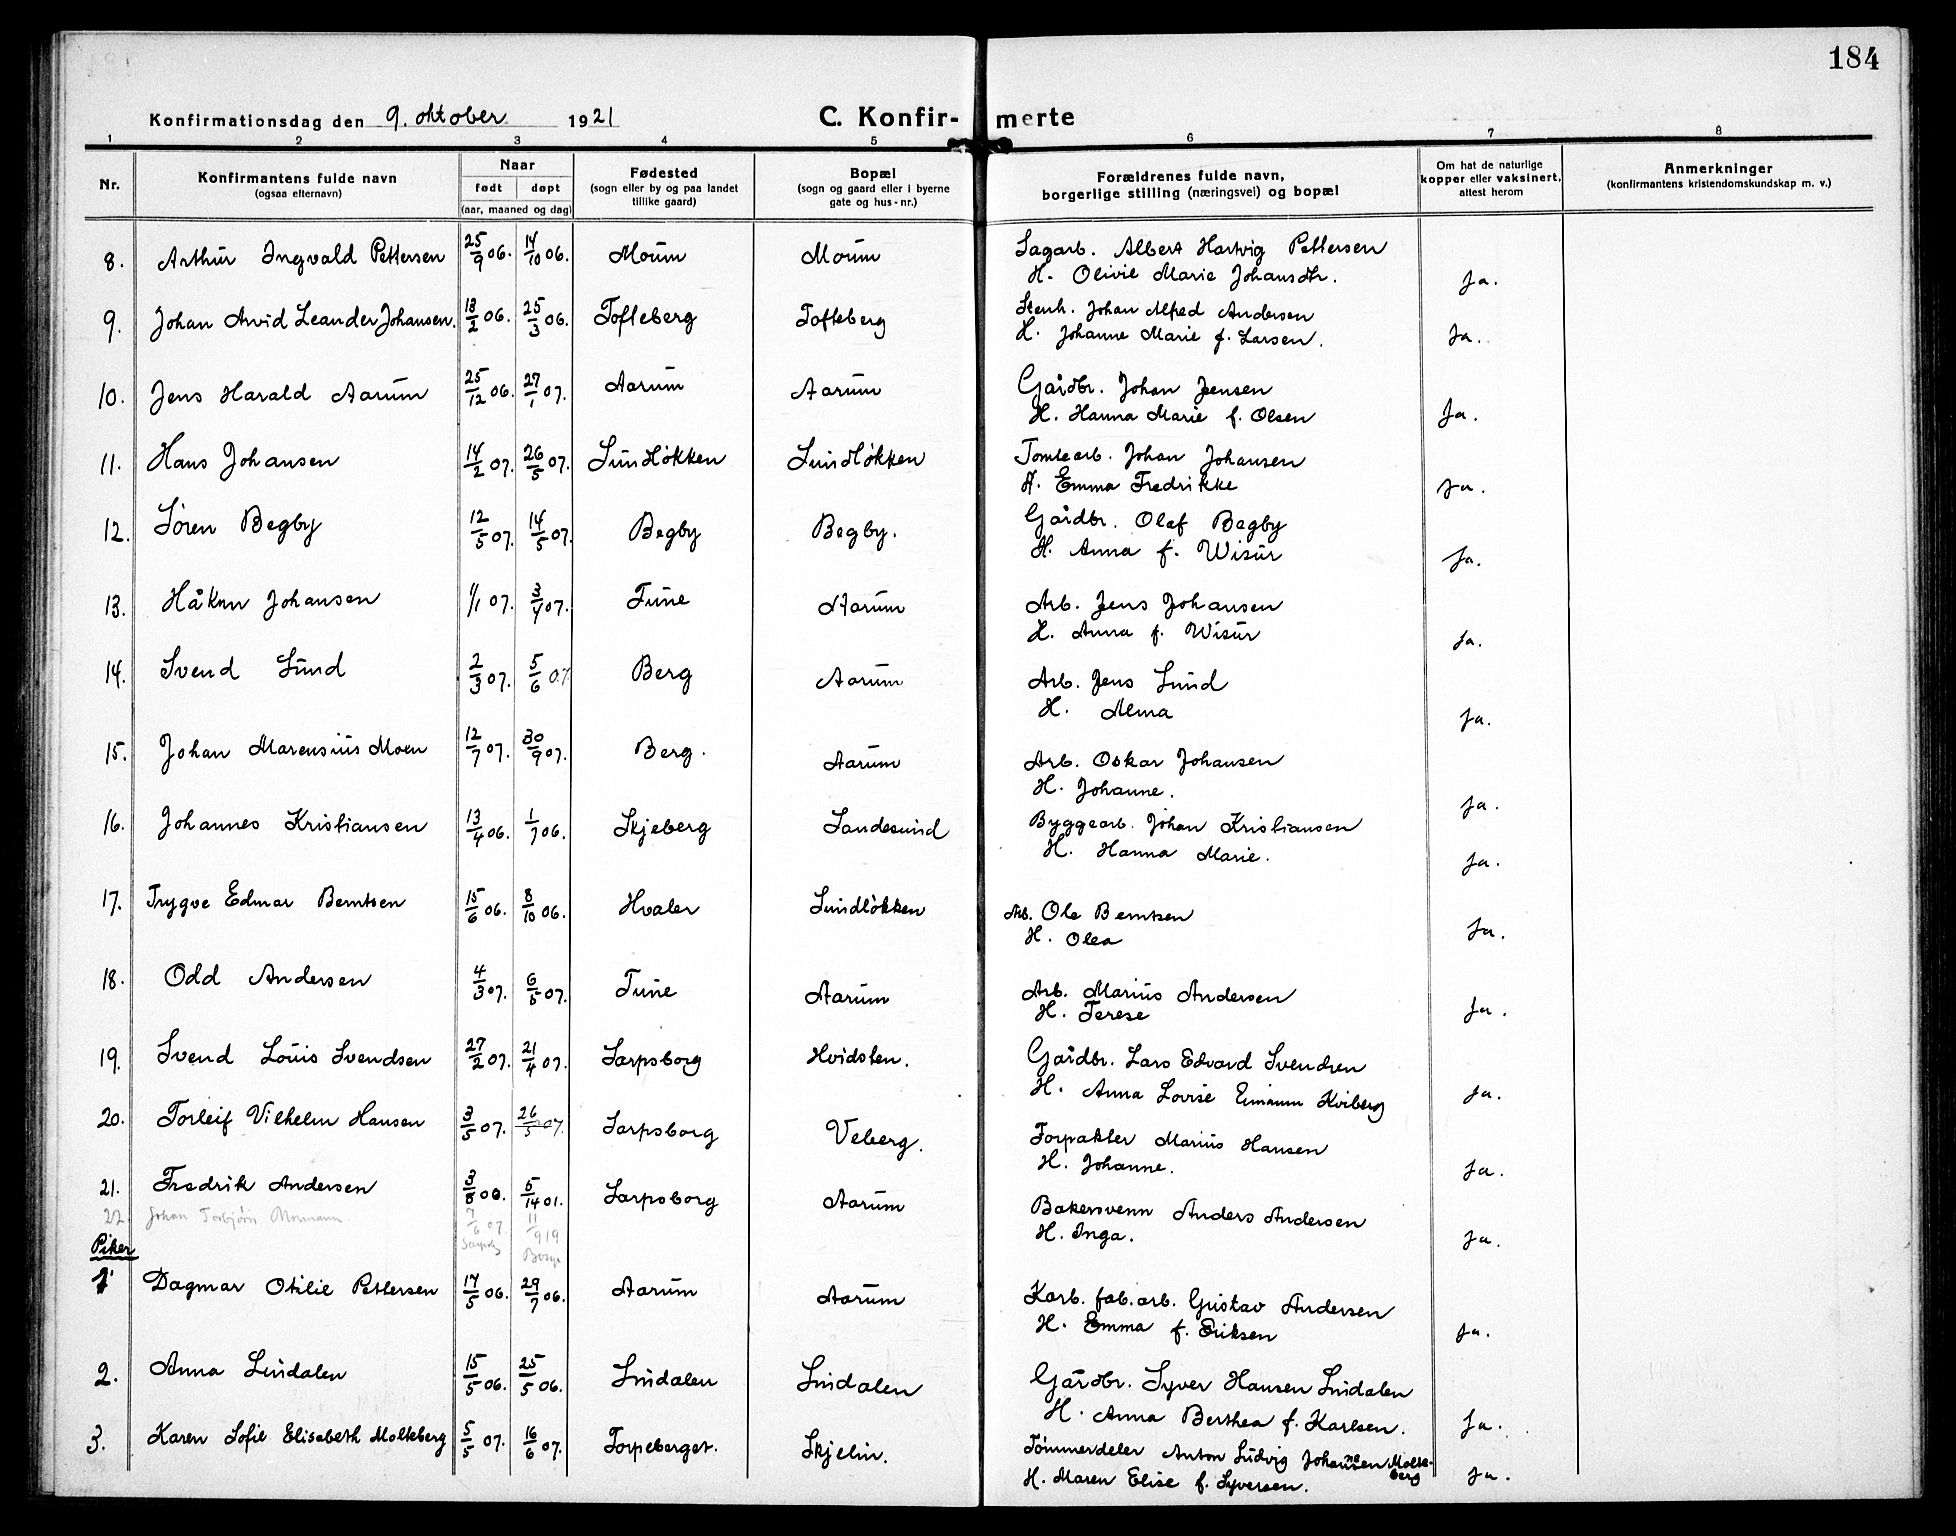 184
Konfirmationsdag den 9. oktober 1921 C. Konfirmerte
1 2 3 4 5 6 7 8
Nr. Konfirmantens fulde navn (ogsaa efternavn) Naar født døpt (aar, maaned og dag) Fødested (sogn eller by og paa landet tillike gaard) Bopæl (sogn og gaard eller i byerne gate og hus-nr.) Forældrenes fulde navn, borgerlige stilling (næringsvei) og bopæl Om hat de naturlige kopper eller vaksinert, attest herom Anmerkninger (konfirmantens kristendomskundskap m. v.)
8. Arthur Ingvald Pettersen 25/9 06. 14/10 06. Moum Moum Sagarb. Albert Hartvig Pettersen
H. Olivie Marie Johansdtr. Ja.
9. Johan Arvid Leander Johansen. 18/2 06. 25/3 06. Tofteberg Tofteberg Stenh. Johan Alfred Andersen
H. Johanne Marie f. Larsen. Ja.
10. Jens Harald Aarum 25/12 06. 27/1 07. Aarum Aarum Gårdbr. Johan Jensen
H. Hanna Marie f. Olsen Ja.
11. Hans Johansen 14/2 07. 26/5 07. Lundløkken Lundløkken Tomtearb. Johan Johansen
H. Emma Fredrikke Ja.
12. Søren Begby 12/5 07. 14/5 07. Begby Begby. Gårdbr. Olaf Begby
H. Anna f. Wisur Ja.
13. Håkon Johansen 1/1 07. 3/4 07. Tune Aarum Arb. Jens Johansen
H. Anna f. Wisur Ja.
14. Svend Lund 2/3 07. 5/6 07 Berg Aarum Arb. Jens Lund
H. Alma Ja.
15. Johan Marensius Moen 12/7 07. 30/9 07. Berg. Aarum Arb. Oskar Johansen
H. Johanne. Ja.
16. Johannes Kristiansen 13/4 06. 1/7 06. Skjeberg Sandesund Byggearb. Johan Kristiansen
H. Hanna Marie. Ja.
17. Trygve Edmar Berntsen 15/6 06. 8/10 06. Hvaler Lundløkken Arb. Ole Berntsen
H. Olea Ja.
18. Odd Andersen 4/3 07. 6/5 07. Tune Aarum Arb. Marius Andersen
H. Terese Ja.
19. Svend Louis Svendsen 27/2 07. 21/4 07. Sarpsborg Hvidsten. Gårdbr. Lars Edvard Svendsen
H. Anna Lovise Kviberg Ja.
20. Torleif Vilhelm Hansen 3/5 07. 26/5 07. Sarpsborg Veberg. Forpakter Marius Hansen
H. Johanne. Ja.
21. Fredrik Andersen 3/8 00. 5/14 01. Sarpsborg Aarum Bakersvenn Anders Andersen
H. Inga. Ja.
22. Johan Torbjørn Mormann 7/6 07. 11/9 19
Piker
1 Dagmar Otilie Pettersen 17/5 06. 29/7 06. Aarum Aarum Korb. fab. arb. Gustav Andersen
H. Emma f. Eriksen Ja.
2. Anna Lindalen 15/5 06. 25/5 06. Lindalen Lindalen Gårdbr. Syver Hansen Lindalen
H. Anna Berthea f. Karlsen. Ja.
3. Karen Sofie Elisabeth Molteberg 5/5 07. 16/6 07. Torpeberget. Skjelin. Tømmerdeler Anton Ludvig Johannesen Molteberg
H. Maren Elise f. Syversen. Ja.